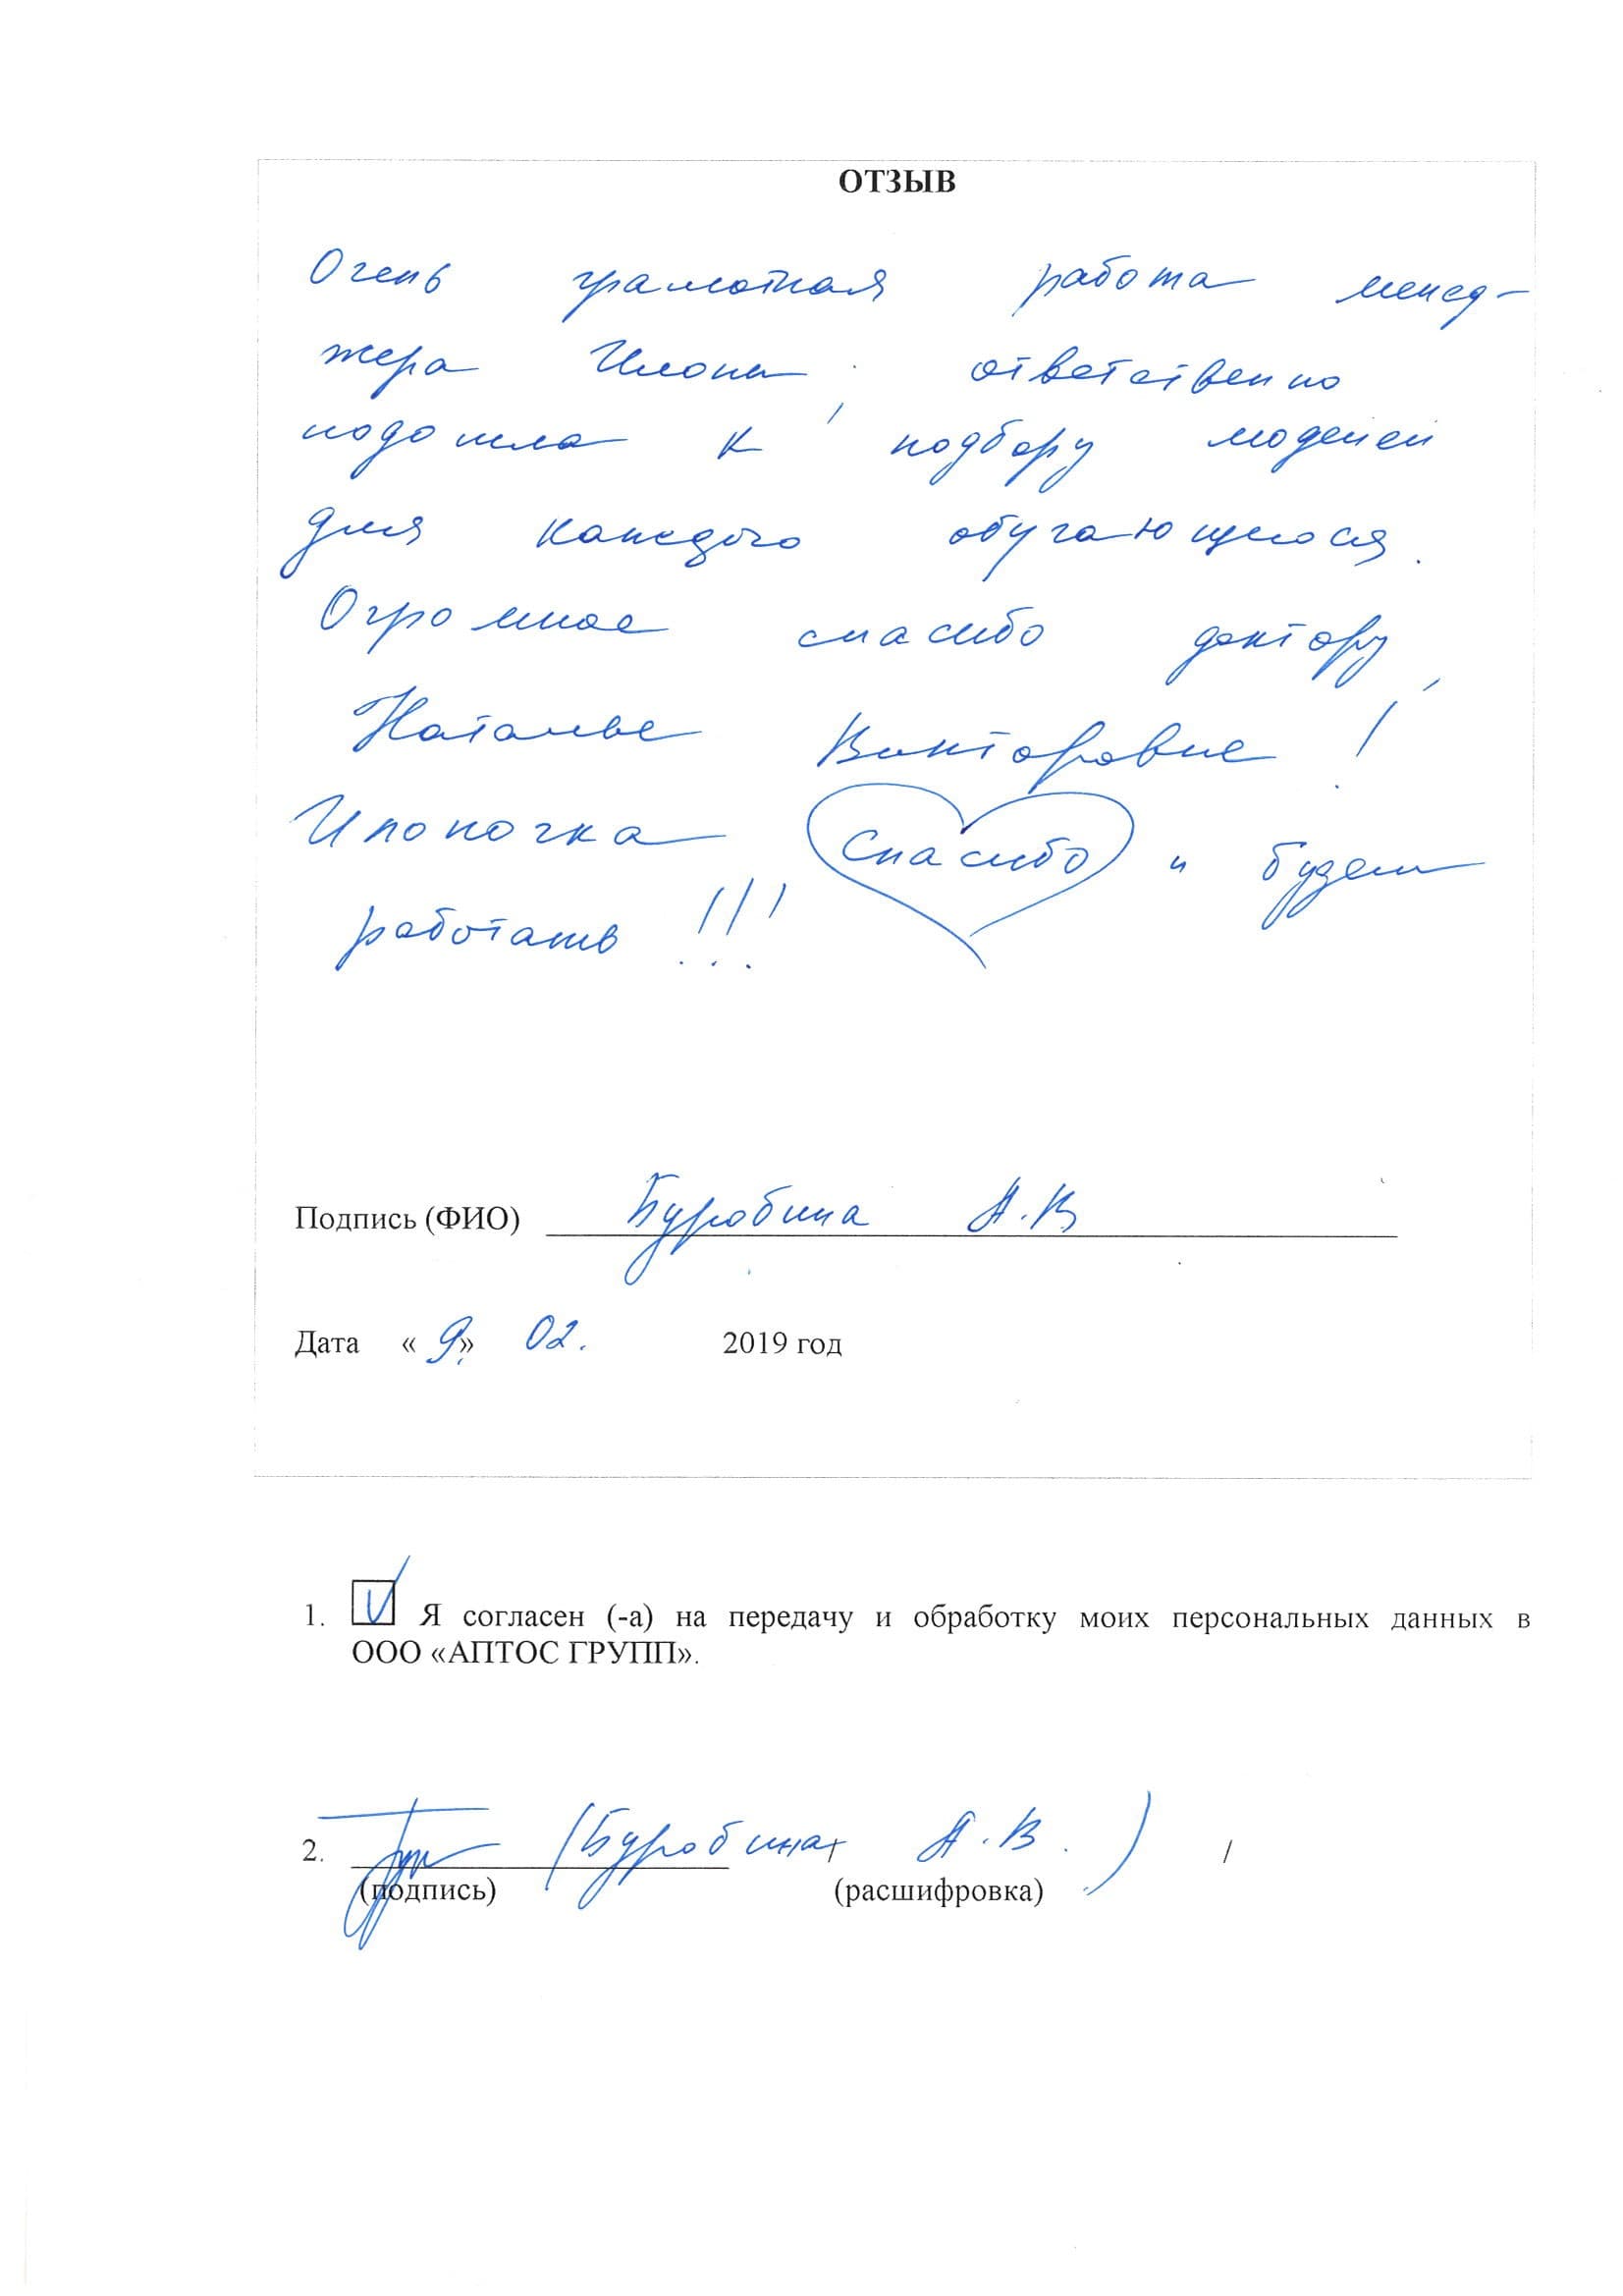 ОТЗЫВ
Очень грамотная работа менед-
жера Илоны, ответственно
подошла к подбору моделей
для каждого обучающегося.
Огромное спасибо доктору,
Наталье Викторовне!
Илоночка спасибо и будем
работать!!!
Подпись (ФИО) Буробина А.В
Дата «9» 02. 2019 год
1. Я согласен (-а) на передачу и обработку моих персональных данных в
ООО «АПТОС ГРУПП».
2. (Буробина А.В.) /
(подпись) (расшифровка)